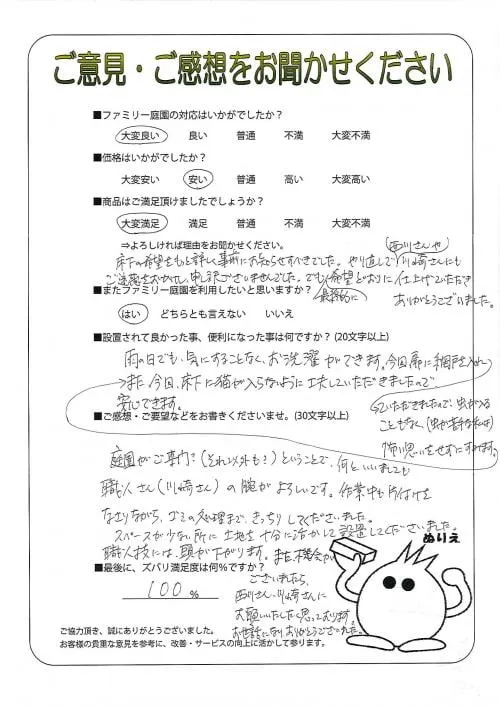 ご意見・ご感想をお聞かせください
■ファミリー庭園の対応はいかがでしたか？
大変良い 良い 普通 不満 大変不満
■価格はいかがでしたか？
大変安い 安い 普通 高い 大変高い
■商品はご満足頂けましたでしょうか？
大変満足 満足 普通 不満 大変不満
⇒よろしければ理由をお聞かせください。
西川さんや
床下の希望をもっと詳しく事前にお知らせすべきでした。やり直しで川崎さんにも
ご迷惑をおかけし、申し訳ございませんでした。でも、希望どおりに仕上げていただき
最終的に
ありがとうございました。
■またファミリー庭園を利用したいと思いますか？
はい どちらとも言えない いいえ
■設置されて良かった事、便利になった事は何ですか？（20文字以上）
雨の日でも、気にすることなく、お洗濯ができます。今回扉に網戸を入れ
→また今回、床下に猫が入らないように工夫していただきましたので
安心できます。
ていただきましたので、虫が入る
こともなく（虫が苦手なため）
怖い思いをせずにすみます。
■ご感想・ご要望などをお書きくださいませ。（30文字以上）
庭園がご専門？（それ以外も？）ということで、何といいましても
職人さん（川崎さん）の腕がよろしいです。作業中も片付けを
なさりながら、ゴミの処理まで、きっちりしてくださいました。
スペースが少ない所に土地を十分に活かして設置してくださいました。
職人技には、頭が下がります。また、機会が
ございましたら、
西川さん、川崎さんに
お願いいたしたく思っております。
お世話になりありがとうございました。
■最後に、ズバリ満足度は何％ですか？
100 ％
ぬりえ
ご協力頂き、誠にありがとうございました。
お客様の貴重な意見を参考に、改善・サービスの向上に活かして参ります。